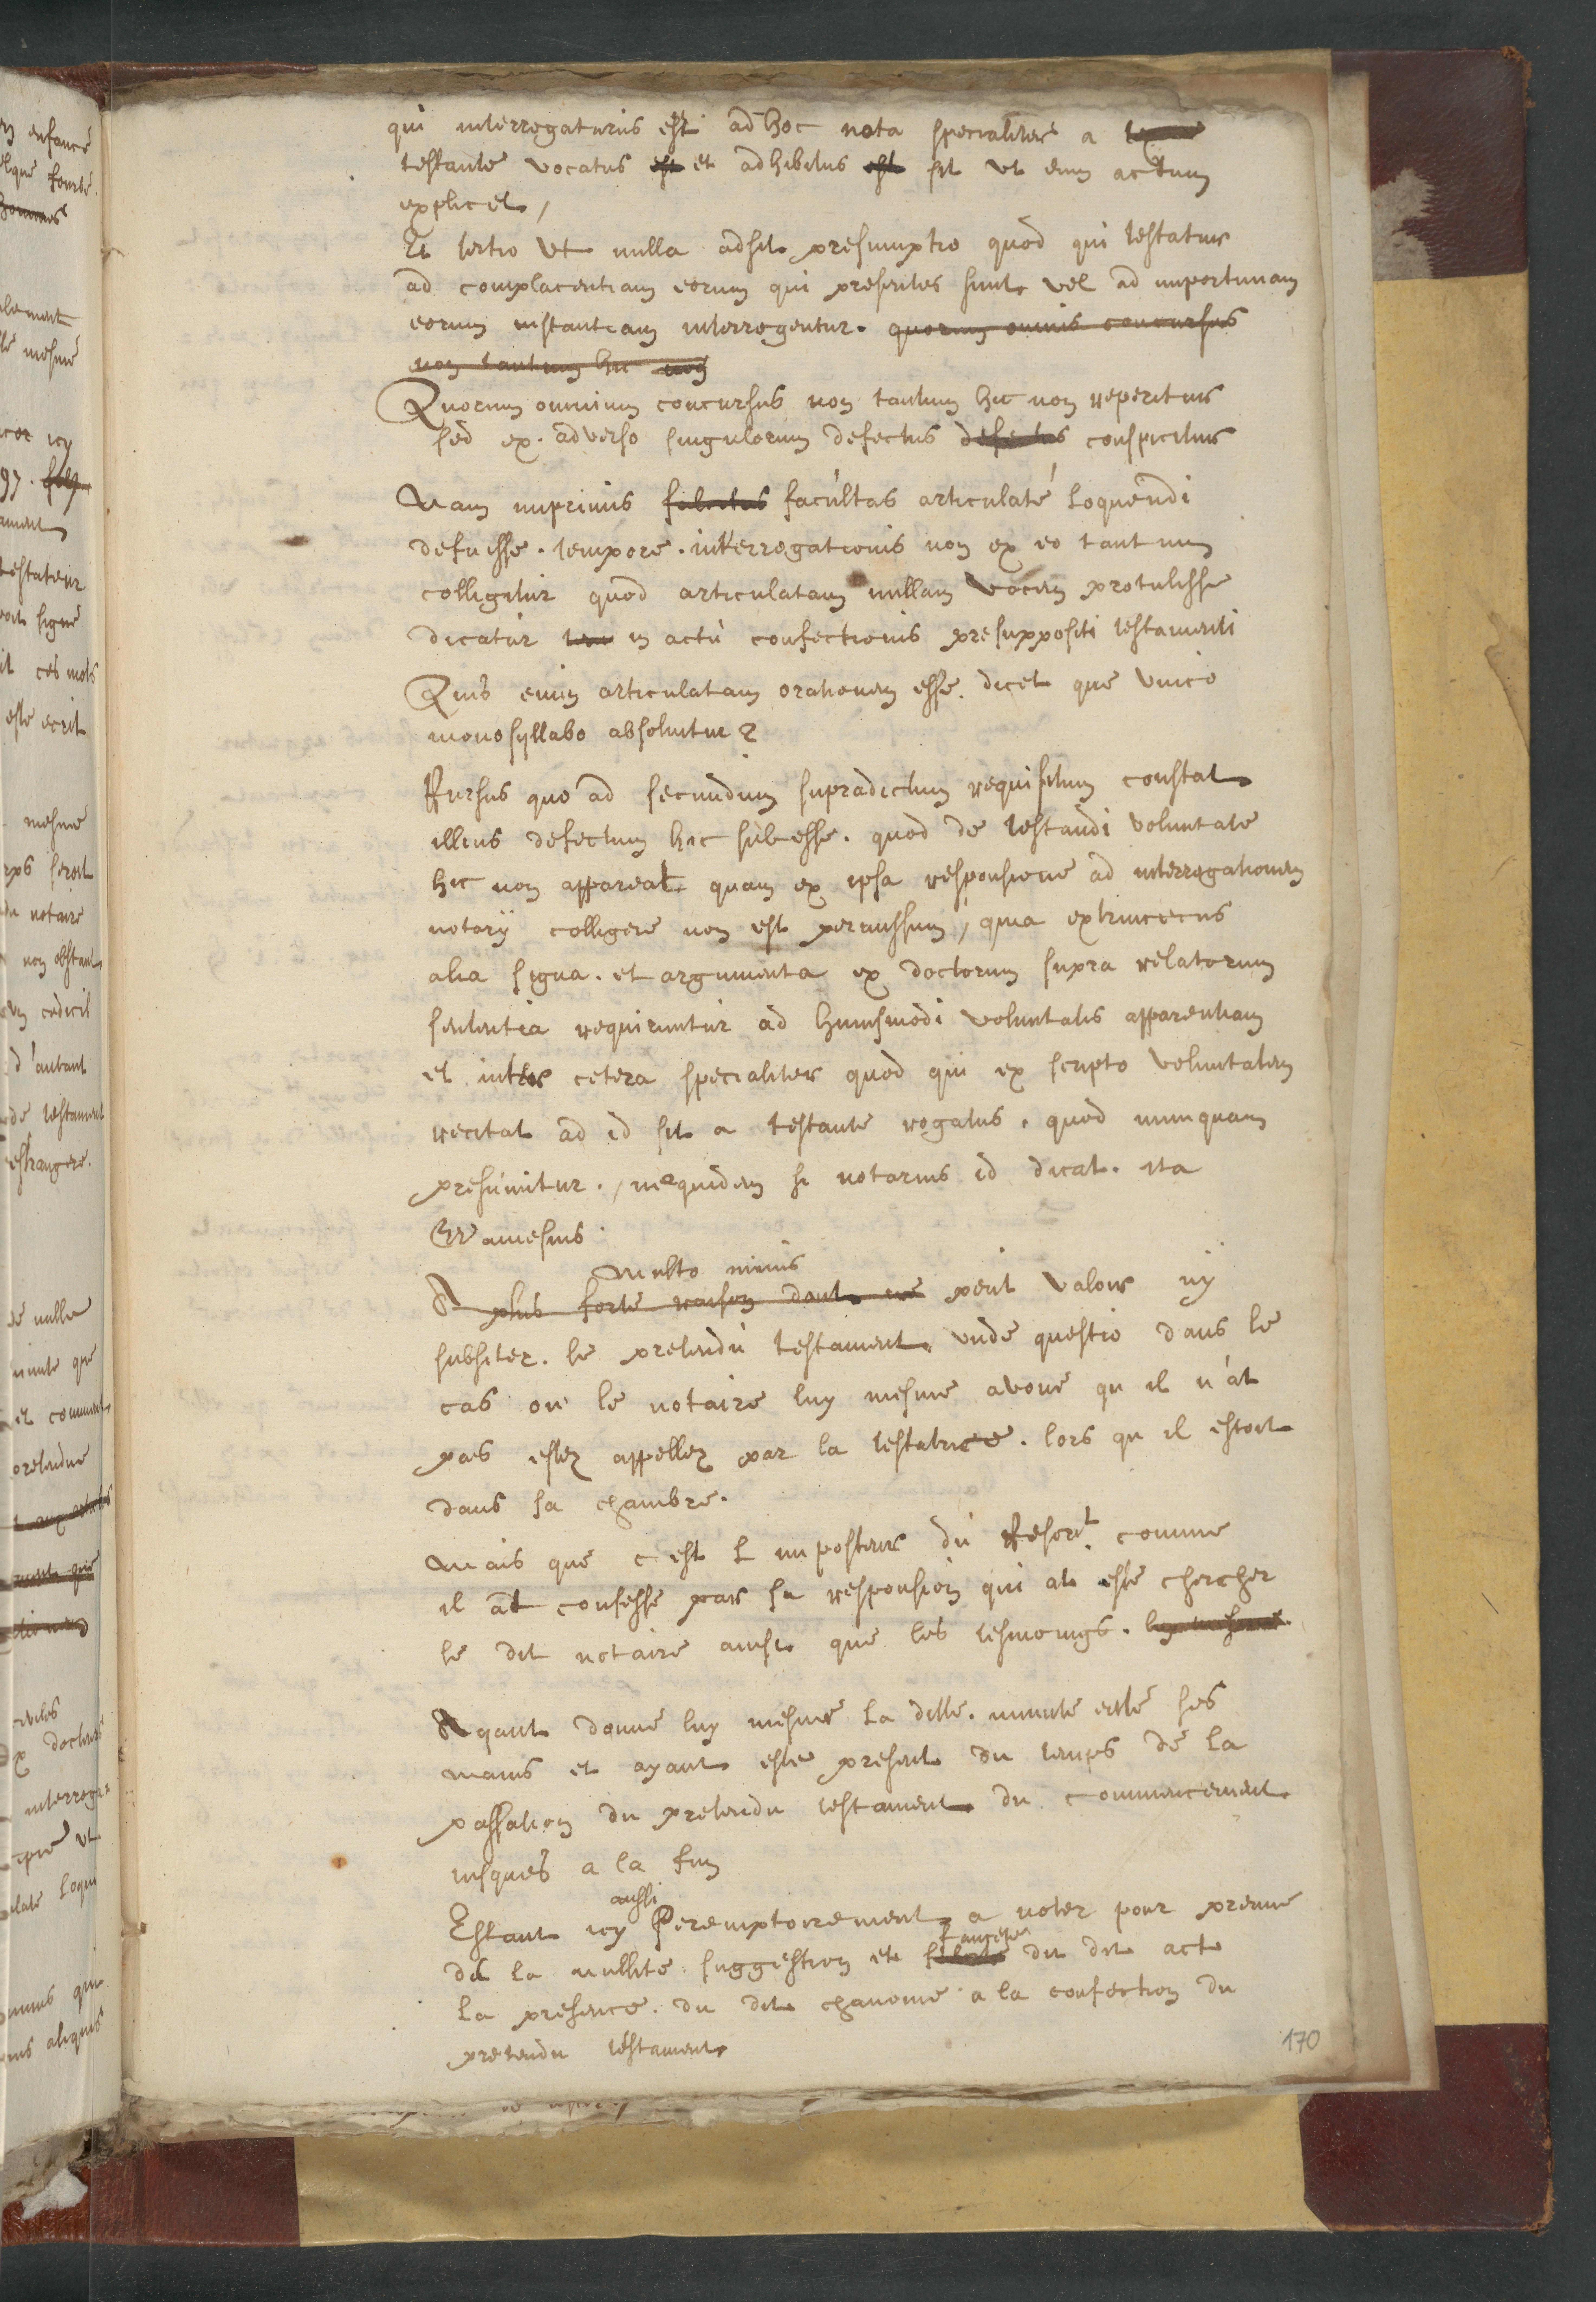 qui interrogaturus est ad hoc nota specialiter a
testante vocatus est et adhibitus est sit ut eum actum
explicet /
Et tertio ut nulla adsit presumptio quod qui testatur
ad complacentiam eorum qui presentes sunt vel ad importunam
eorum instantiam interrogentur. quorum omnis concursus
non tantum hic non
Quorum omnium concursus non tantum hic non reperitur
sed ex adverso singulorum defectus defectus conspicitur
Nam imprimis facultas articulaté loquendi
defuisse. tempore. interrogationis non ex eo tantum
colligitur quod articulatam nullam vocem protulisse
dicatur in actu confectionis presuppositi testamenti
Quis enim articulatam orationem esse. dicet que unico
monosyllabo absolvitur?
Rursus quo ad secundum supradictum requisitum constat
illius defectum hic subesse. quod de testandi voluntate
hic non appareat quam ex ipsa responsione ad interrogationem
notarij colligere non est permissum, quia extrincecus
alia signa. et argumenta ex doctorum supra relatorum
sententia requiruntur ad huiusmodi voluntatis apparentiam
et inter cetera specialiter quod qui ex scripto voluntatem
recitat ad id sit a testante rogatus. quod nunquam
presumitur. / nequidem si notarius id dicat. ita
Wamesius
Multo minus
A plus forte raison dont ne peut valoir ny
subsiter. le pretendu testament. unde questio dans le
cas ou le notaire luy mesme avoue qu il n'at
pas estez appellez par la testatrice. lors qu il estoit
dans sa chambre.
Mais que c est L imposteur du Rescrt. comme
il at confesse par sa responsion qui at esté chercher
le dit notaire ainsi que les tesmoings. luy mesme.
Ayant donné luy mesme la ditte. minute entre ses
mains et ayant esté present du temps de la
passation du pretendu testament du commencement
iusques a la fin
aussi
Estant icy Peremptoirement a noter pour preuve
de la nullité. suggestion et du dit acte
la presence. du dit chanoine a la confection du
pretendu testament
170